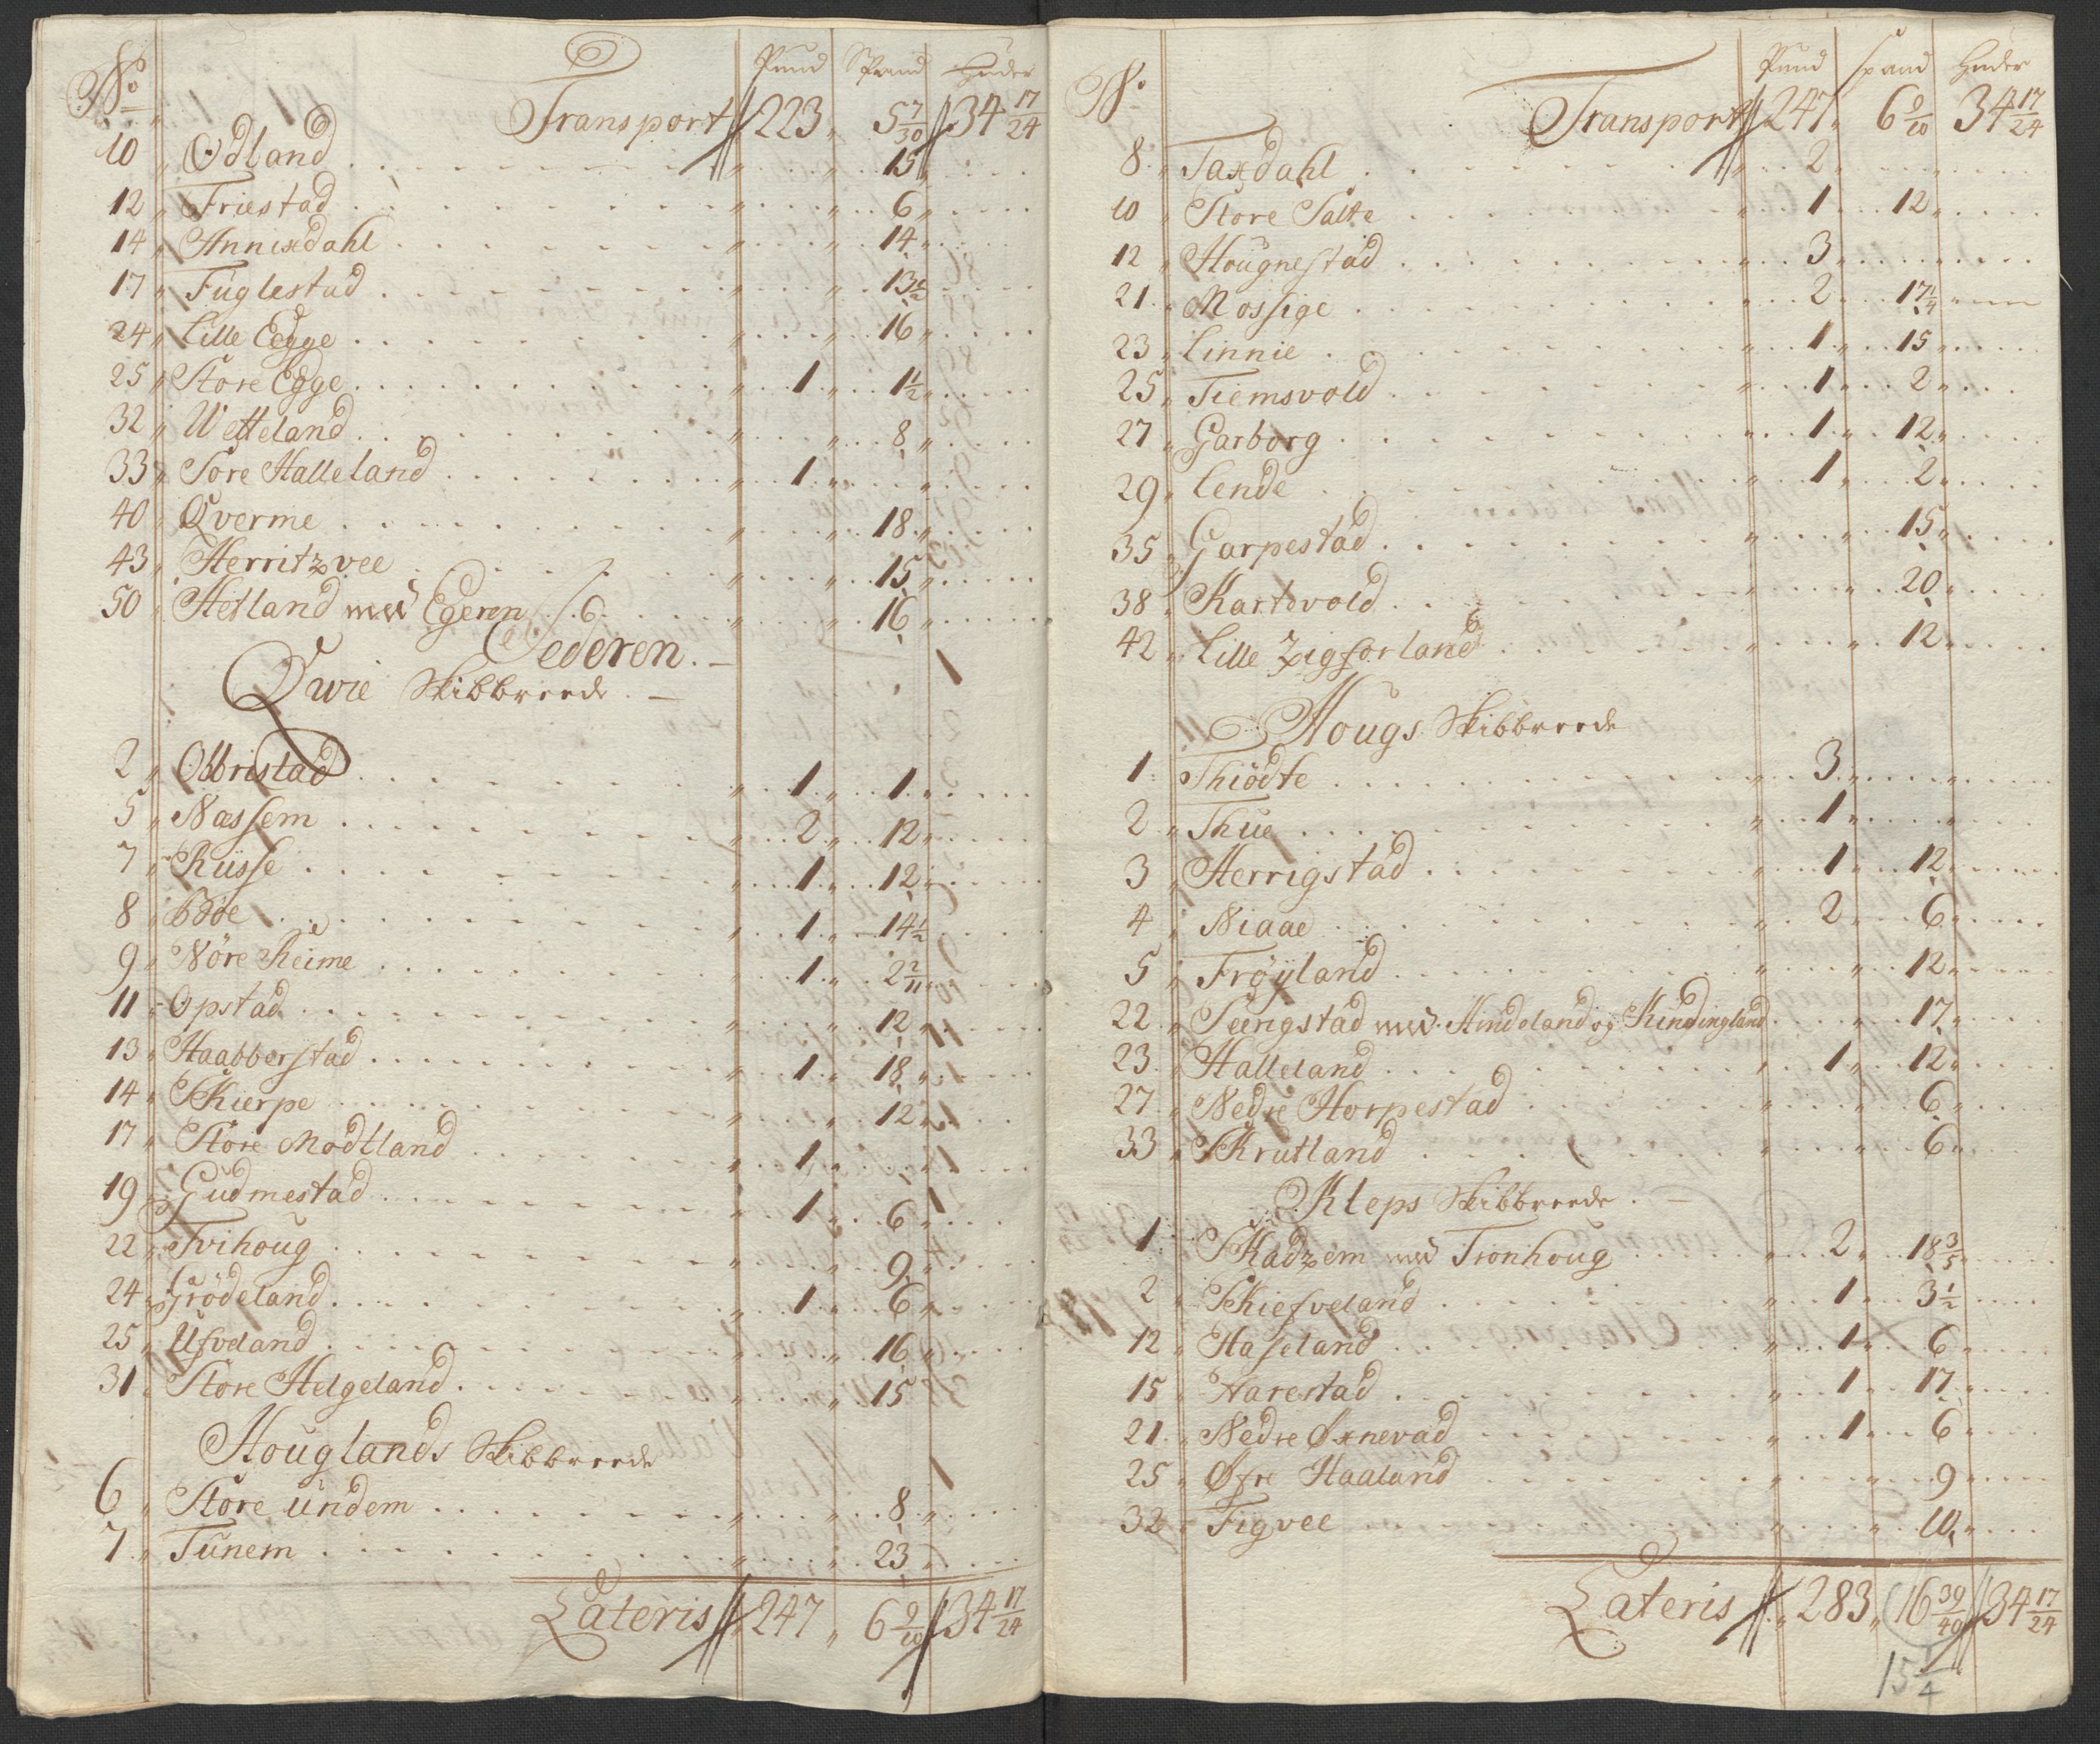 No Pund Spand Huder
Transport 223 5 7/30 34 17/24
10 Ødland 15
12 Friestad 6
14 Annixdahl 14
17 Fuglestad 13 1/2
24 Lille Eegge 16
25 Store Egge 1 1 1/2
32 Wetteland 8
33 Sore Halleland 1
40 Qverme 18
43 Herritzvee 15
50 Hetland med Egeren 16
Jederen.
Qwie Skibbreede
2 Obbrestad 1 1
5 Næssem 2 12
7 Rüsse 1 12
8 Böe 1 14 1/2
9 Nöre Reime 1 2 2/11
11 Opstad 12
13 Haabberstad 1 18
14 Skierpe 12
17 Store Modtland 1
19 Gudmestad 1 6
22 Tvihoug 9
24 Grödeland 1 6
25 Ufveland 16
31 Store Helgeland 15
Houglands Skibbreede
6 Store Undem 8
7 Tunem 23
Lateris 247 6 9/10 34 17/24
No Pund Spand Huder
Transport 247 6 9/10 34 17/24
8 Taxdahl 2
10 Store Salte 1 12
12 Hougnestad 3
21 Mossige 2 17 1/4
23 Linnie 1 15
25 Tiemsvold 1 2
27 Garborg 1 12
29 Lende 1 2
35 Garpestad 15
38 Kartevold 20
42 Lille Zigsorland 12
Hougs Skibbreede
1 Thiödte 3
2 Thue 1
3 Herrigstad 1 12
4 Niaae 2 6
5 Fröyland 12
22 Seengstad med Hindeland og Kindingland 17
23 Halleland 1 12
27 Nedre Horpestad 6
33 Skrutland 6
Kleps Skibbreede
1 Skadzem med Tronhoug 2 18 3/5
2 Skiefveland 1 3 1/2
12 Haseland 1 6
15 Harestad 1 17
21 Nedre Øxnevad 1 6
25 Øfre Haaland 9
32 Figvee 10
Lateris 283 16 39/40 34 17/24
15 1/4